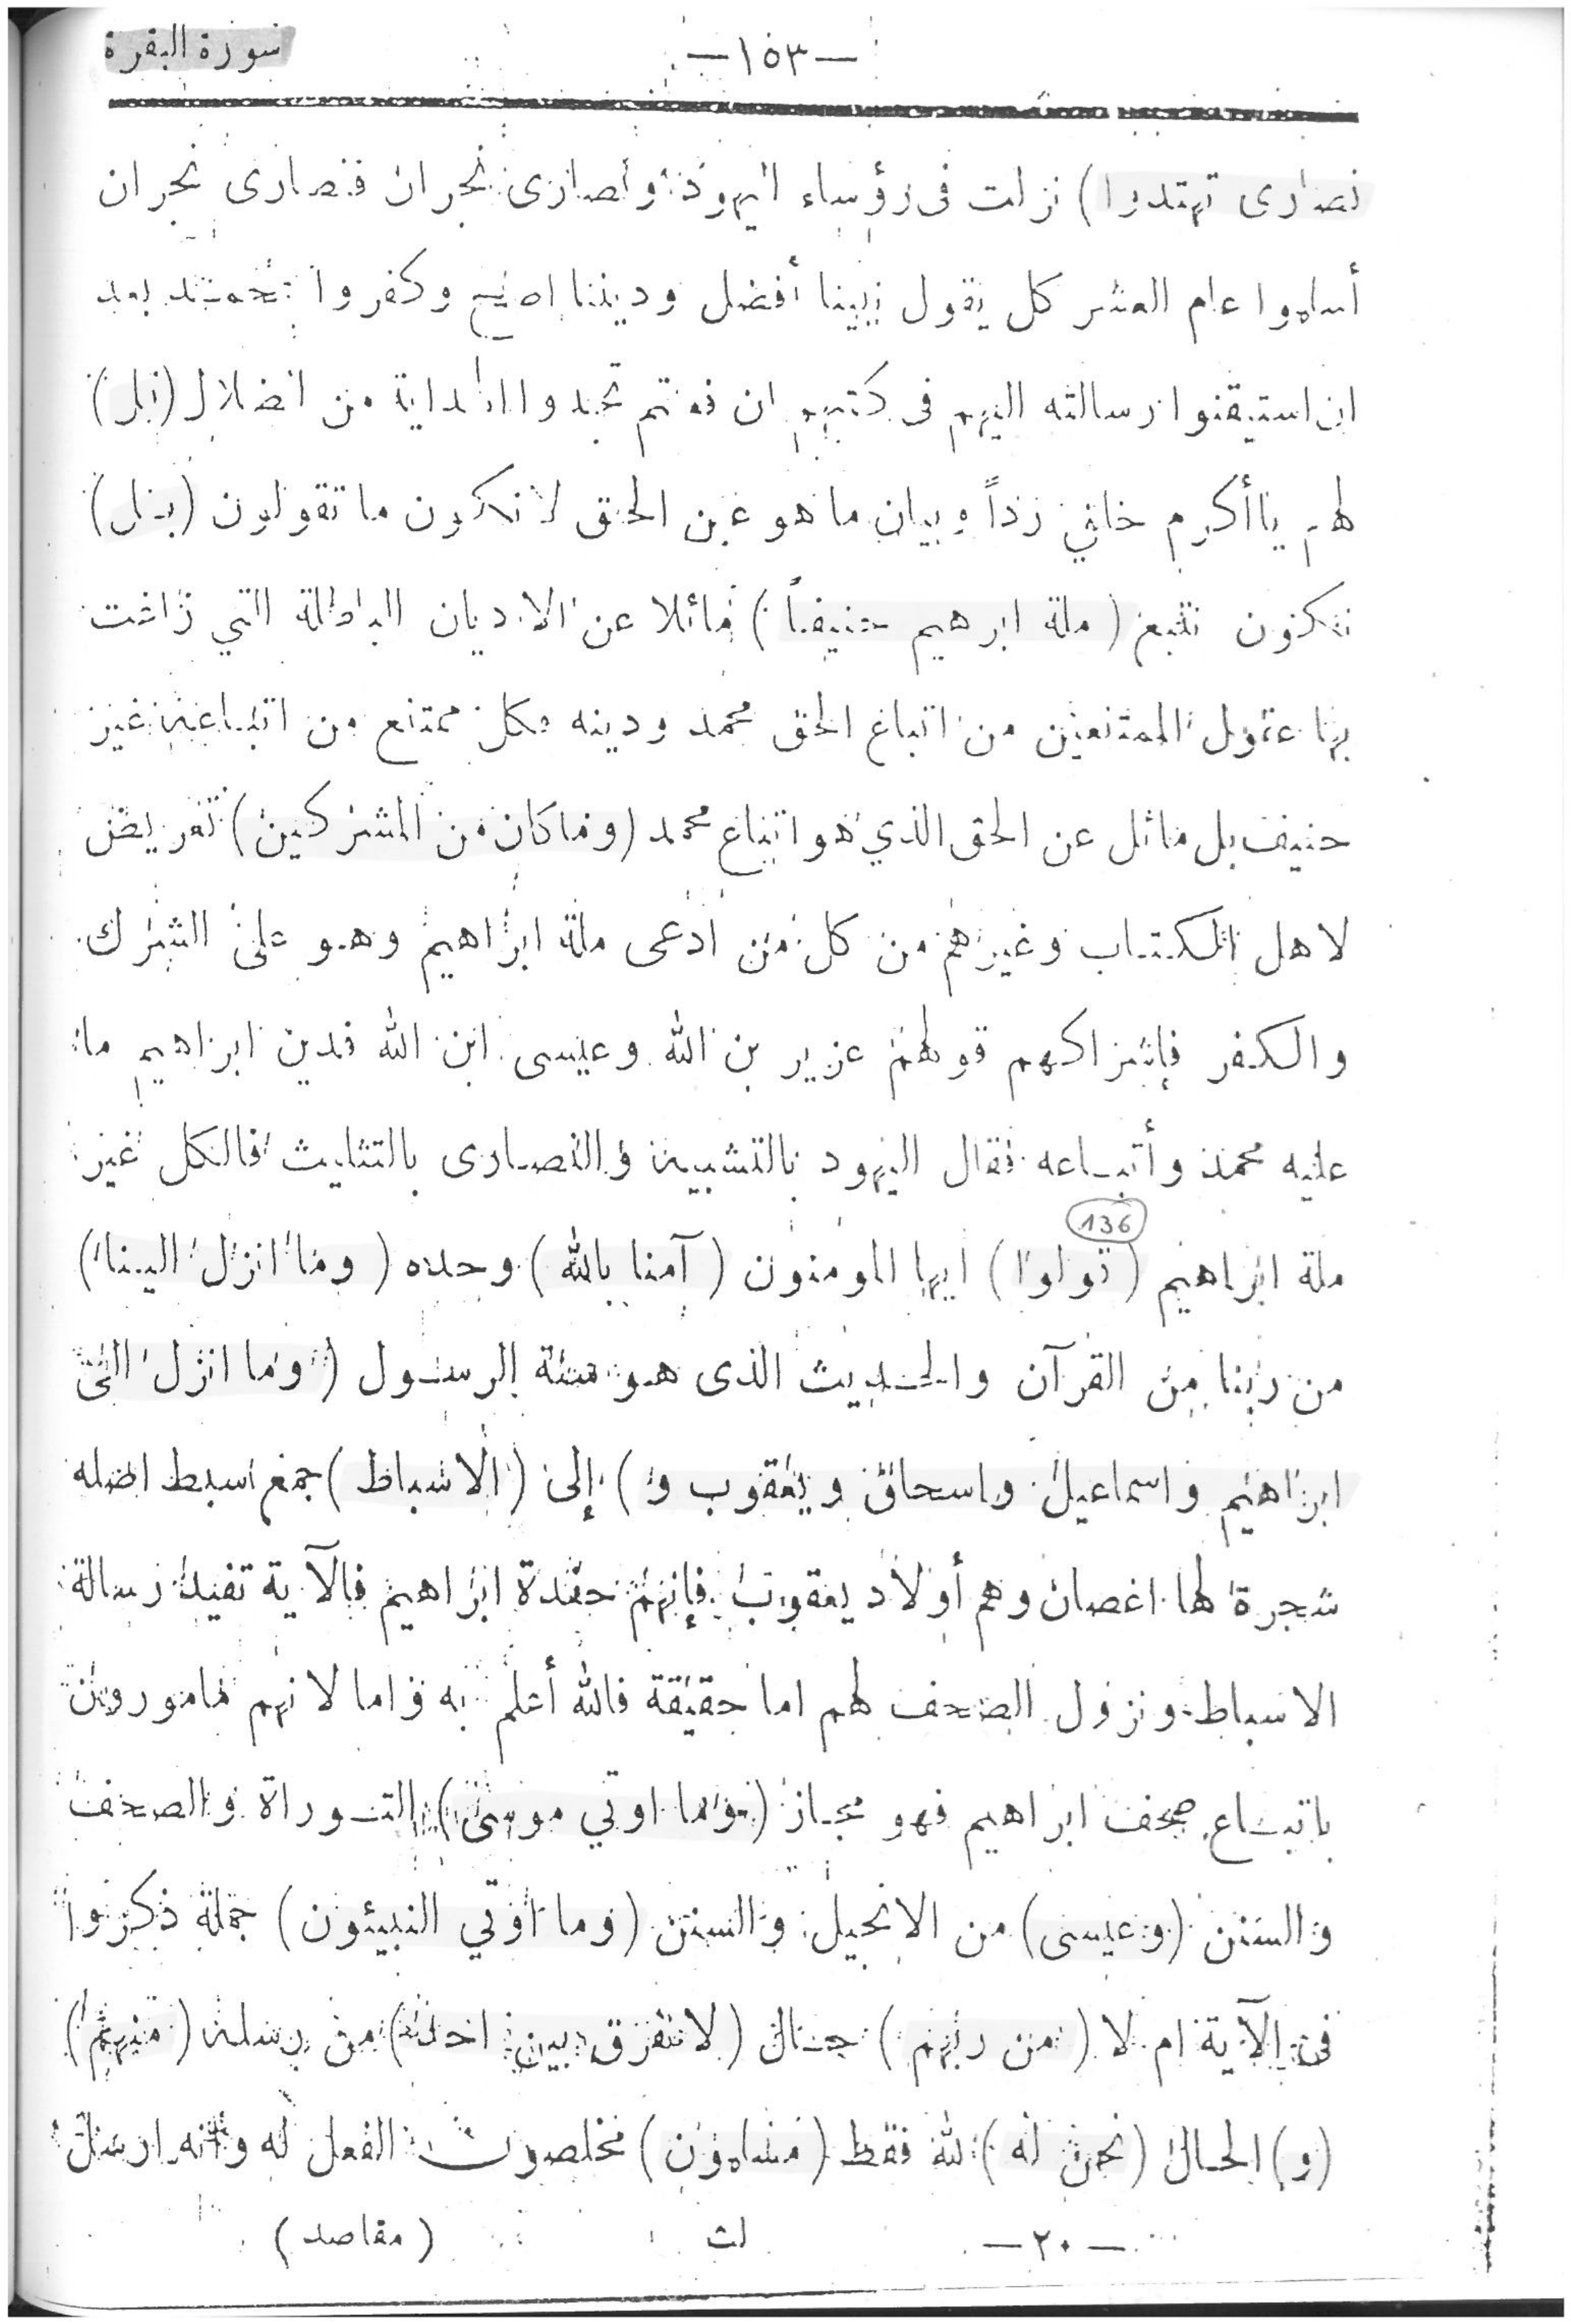 سورة البقرة
—١٥٣—
نصارى تهتدوا) نزلت فى رؤساء اليهود ونصارى نجران فنصارى نجران
أسلموا عام العشر كل يقول نبينا أفضل وديننا اصح وكفروا بمحمد بعد
ان استيقنوا رسالته اليهم فى كتبهم ان قوتم تجدوا الهداية من الضلال (قل)
لهم يا أكرم خلقي رداً وبيان ما هو عين الحق لا نكون ما تقولون (بل)
نكون نتبع (ملة ابرهيم حنيفاً) مائلا عن الاديان الباطلة التي زاغت
بها عقول الممتنعين من اتباع الحق محمد ودينه فكل ممتنع من اتباعه غير
حنيف بل مائل عن الحق الذي هو اتباع محمد (وما كان من المشركين) تعريض
لاهل الكتاب وغيرهم من كل من ادعى ملة ابراهيم وهو على الشرك
والكفر فإشراكهم قولهم عزير بن الله وعيسى ابن الله فدين ابراهيم ما
عليه محمد وأتباعه فقال اليهود بالتشبيه والنصارى بالتثليث فالكل غير
136
ملة ابراهيم (قولوا) ايها المومنون (آمنا بالله) وحده (وما انزل الينا)
من ربنا من القرآن والحديث الذى هو سنة الرسول (وما انزل الى
ابراهيم واسماعيل واسحاق ويعقوب و) إلى (الاسباط) جمع سبط اصله
شجرة لها اغصان وهم أولاد يعقوب فإنهم حفدة ابراهيم فالآية تفيد رسالة
الاسباط ونزول الصحف لهم اما حقيقة فالله أعلم به واما لانهم مامورون
باتباع صحف ابراهيم فهو مجاز (وما اوتي موسى) التوراة والصحف
والسنن (وعيسى) من الانجيل والسنن (وما اوتي النبيئون) جملة ذكروا
فى الآية ام لا (من ربهم) حال (لا نفرق بين احد) من رسله (منهم)
(و) الحال (نحن له) لله فقط (مسلمون) مخلصون الفعل له وأنه ارسل
—٢٠— لث (مقاصد)